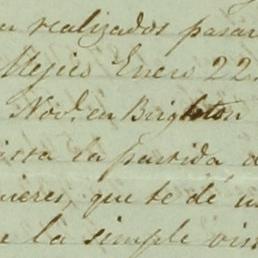 realizados pasar
Mejico Enero 22.
Novd. en Brighton
la partida d
quieres, que te dé u
la simple vis